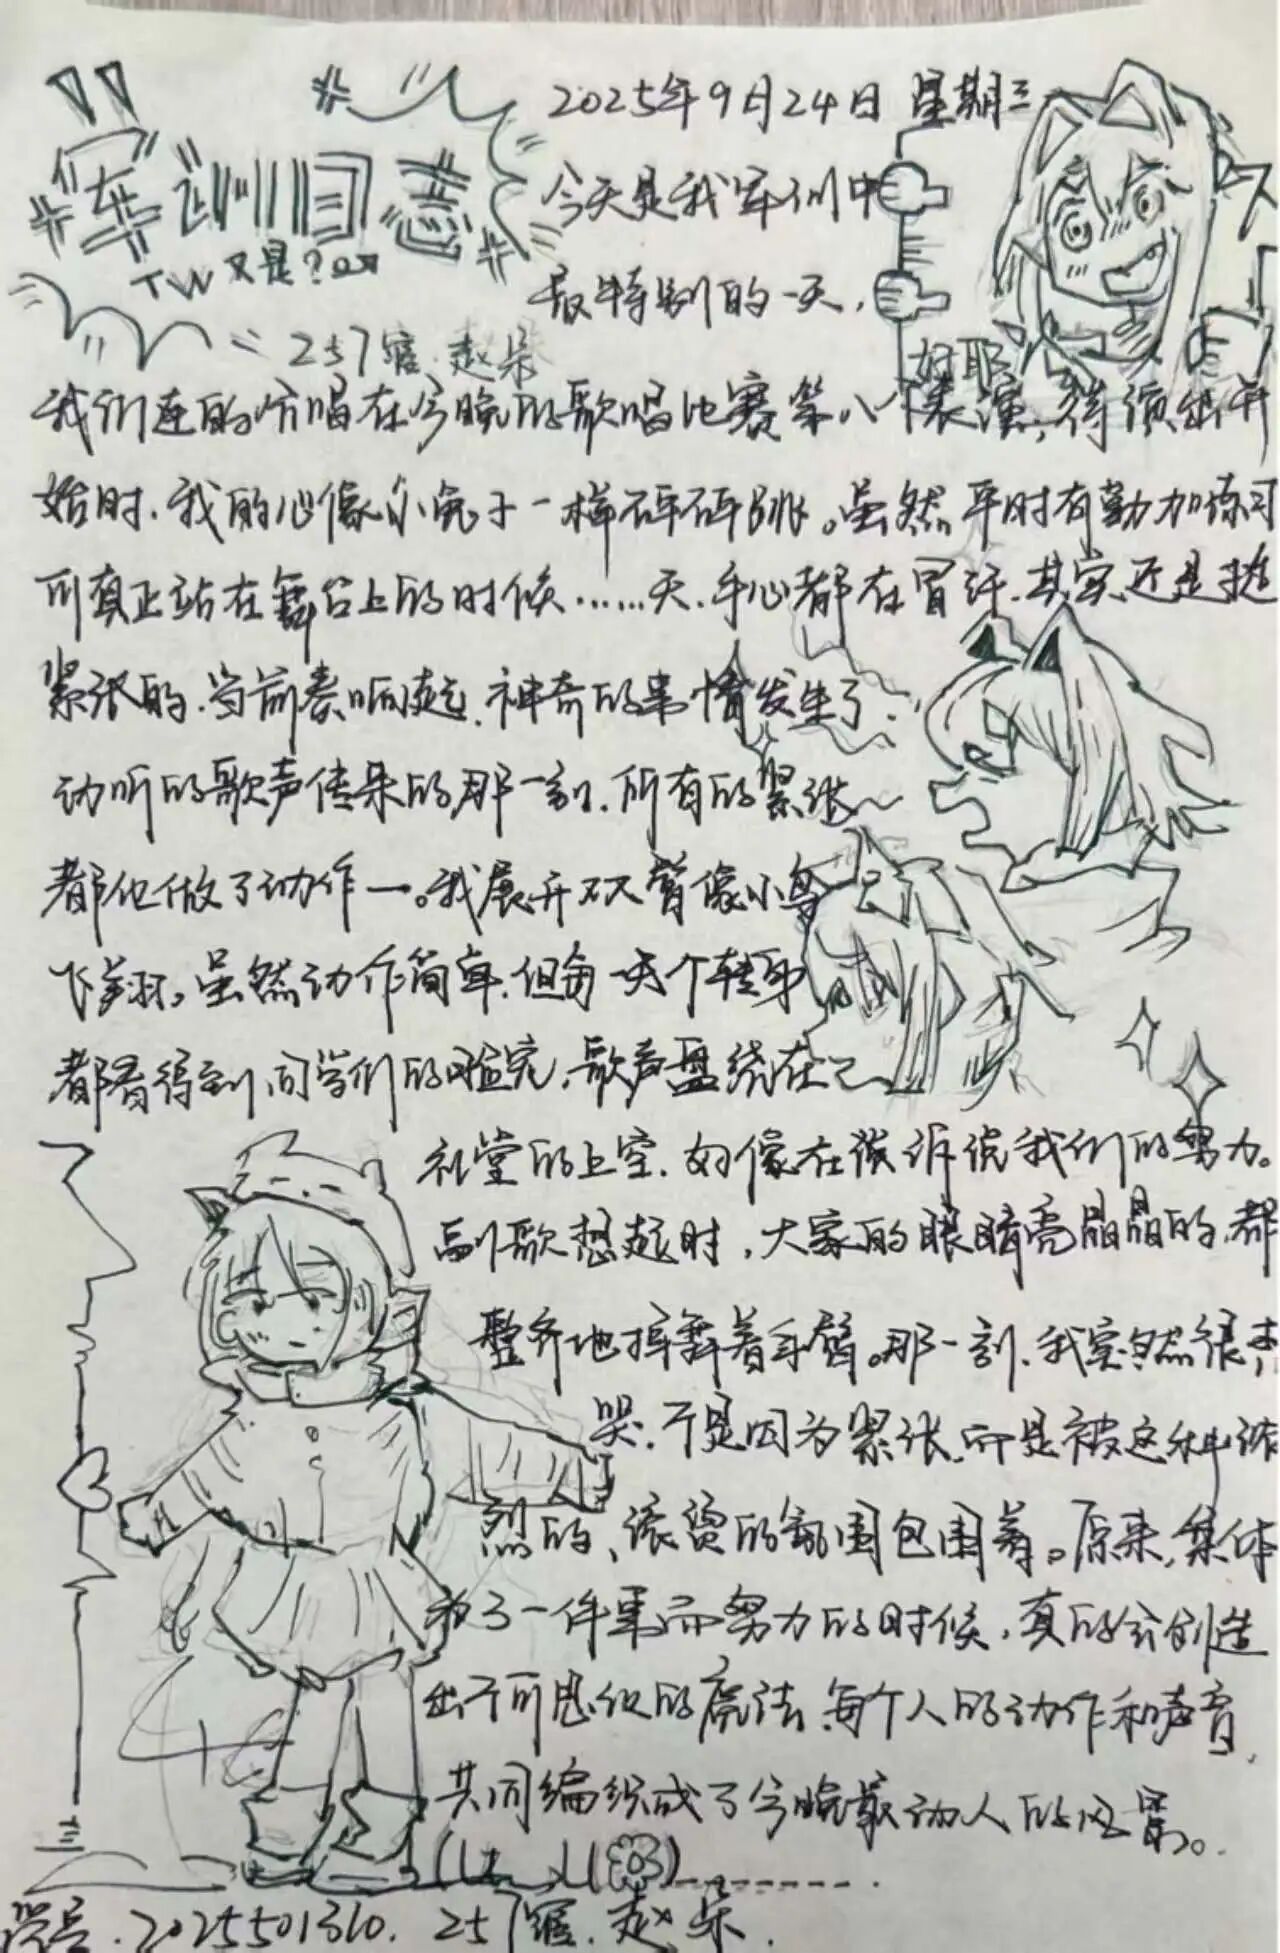 军训日志
TW又是?
2025年9月24日 星期三
今天是我军训中
最特别的一天，
257寝.赵朵
好耶
我们连的合唱在今晚的歌唱比赛第八个表演，待演组开
始时，我的心像小兔子一样砰砰跳。虽然平时有勤加练习
可真正站在舞台上的时候……天，手心都在冒汗，其实还是挺
紧张的，当前奏响起，神奇的事情发生了
动听的歌声传来的那一刻，所有的紧张
都化做了动作一。我展开双臂像小鸟
飞翔。虽然动作简单，但每一个转身
都看得到同学们的，歌声盘绕在
礼堂的上空，好像在诉说我们的努力。
副歌想起时，大家的眼睛亮晶晶的，都
整齐地挥舞着手臂。那一刻，我突然很想
哭，不是因为紧张，而是被这种浓
烈的、滚烫的氛围包围着。原来，集体
为了一件事而努力的时候，真的会创造
出不可思议的魔法，每个人的动作和声音，
共同编织成了今晚最动人的风景。
学号.2025501310. 257寝.赵朵.